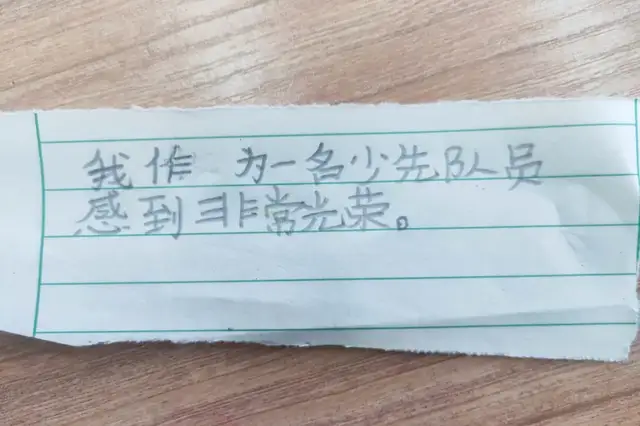 我作 为一名少先队员
感到非常光荣。